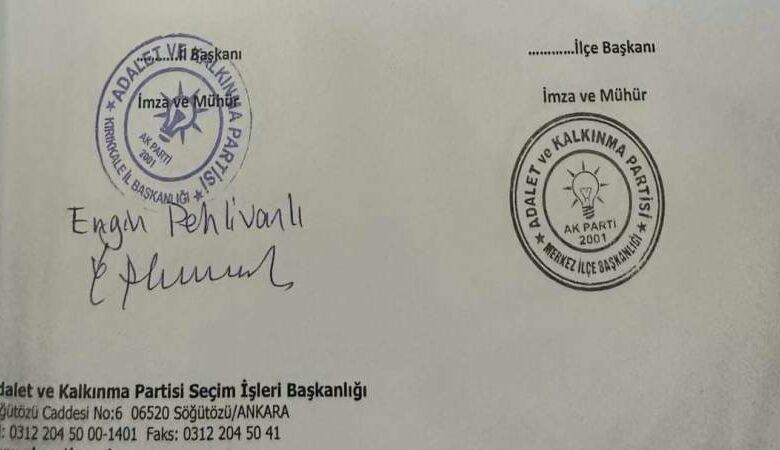 ...........İl Başkanı
............İlçe Başkanı
İmza ve Mühür
İmza ve Mühür
ADALET VE KALKINMA PARTİSİ
AK PARTİ
2001
KIRIKKALE İL BAŞKANLIĞI
ADALET ve KALKINMA PARTİSİ
AK PARTİ
2001
MERKEZ İLÇE BAŞKANLIĞI
Engin Pehlivanlı
dalet ve Kalkınma Partisi Seçim İşleri Başkanlığı
ğütözü Caddesi No:6 06520 Söğütözü/ANKARA
: 0312 204 50 00-1401 Faks: 0312 204 50 41